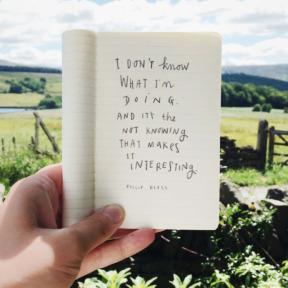 I DON'T KNOW
WHAT I'M
DOING.
AND IT'S THE
NOT KNOWING
THAT MAKES
IT INTERESTING.
PHILIP GLASS